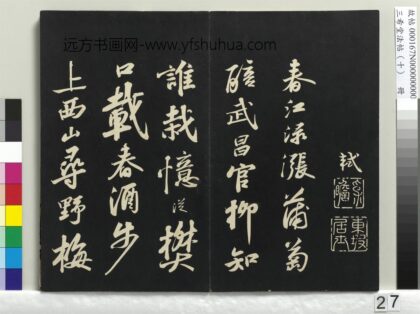 远方书画网-www.yfshuhua.com
故帖 000167N000000000
三希堂法帖（十） 冊
軾
東坡居士
春江淥漲蒲萄
醅武昌官柳知
誰栽憶從樊
口載春酒步
上西山尋野梅
27